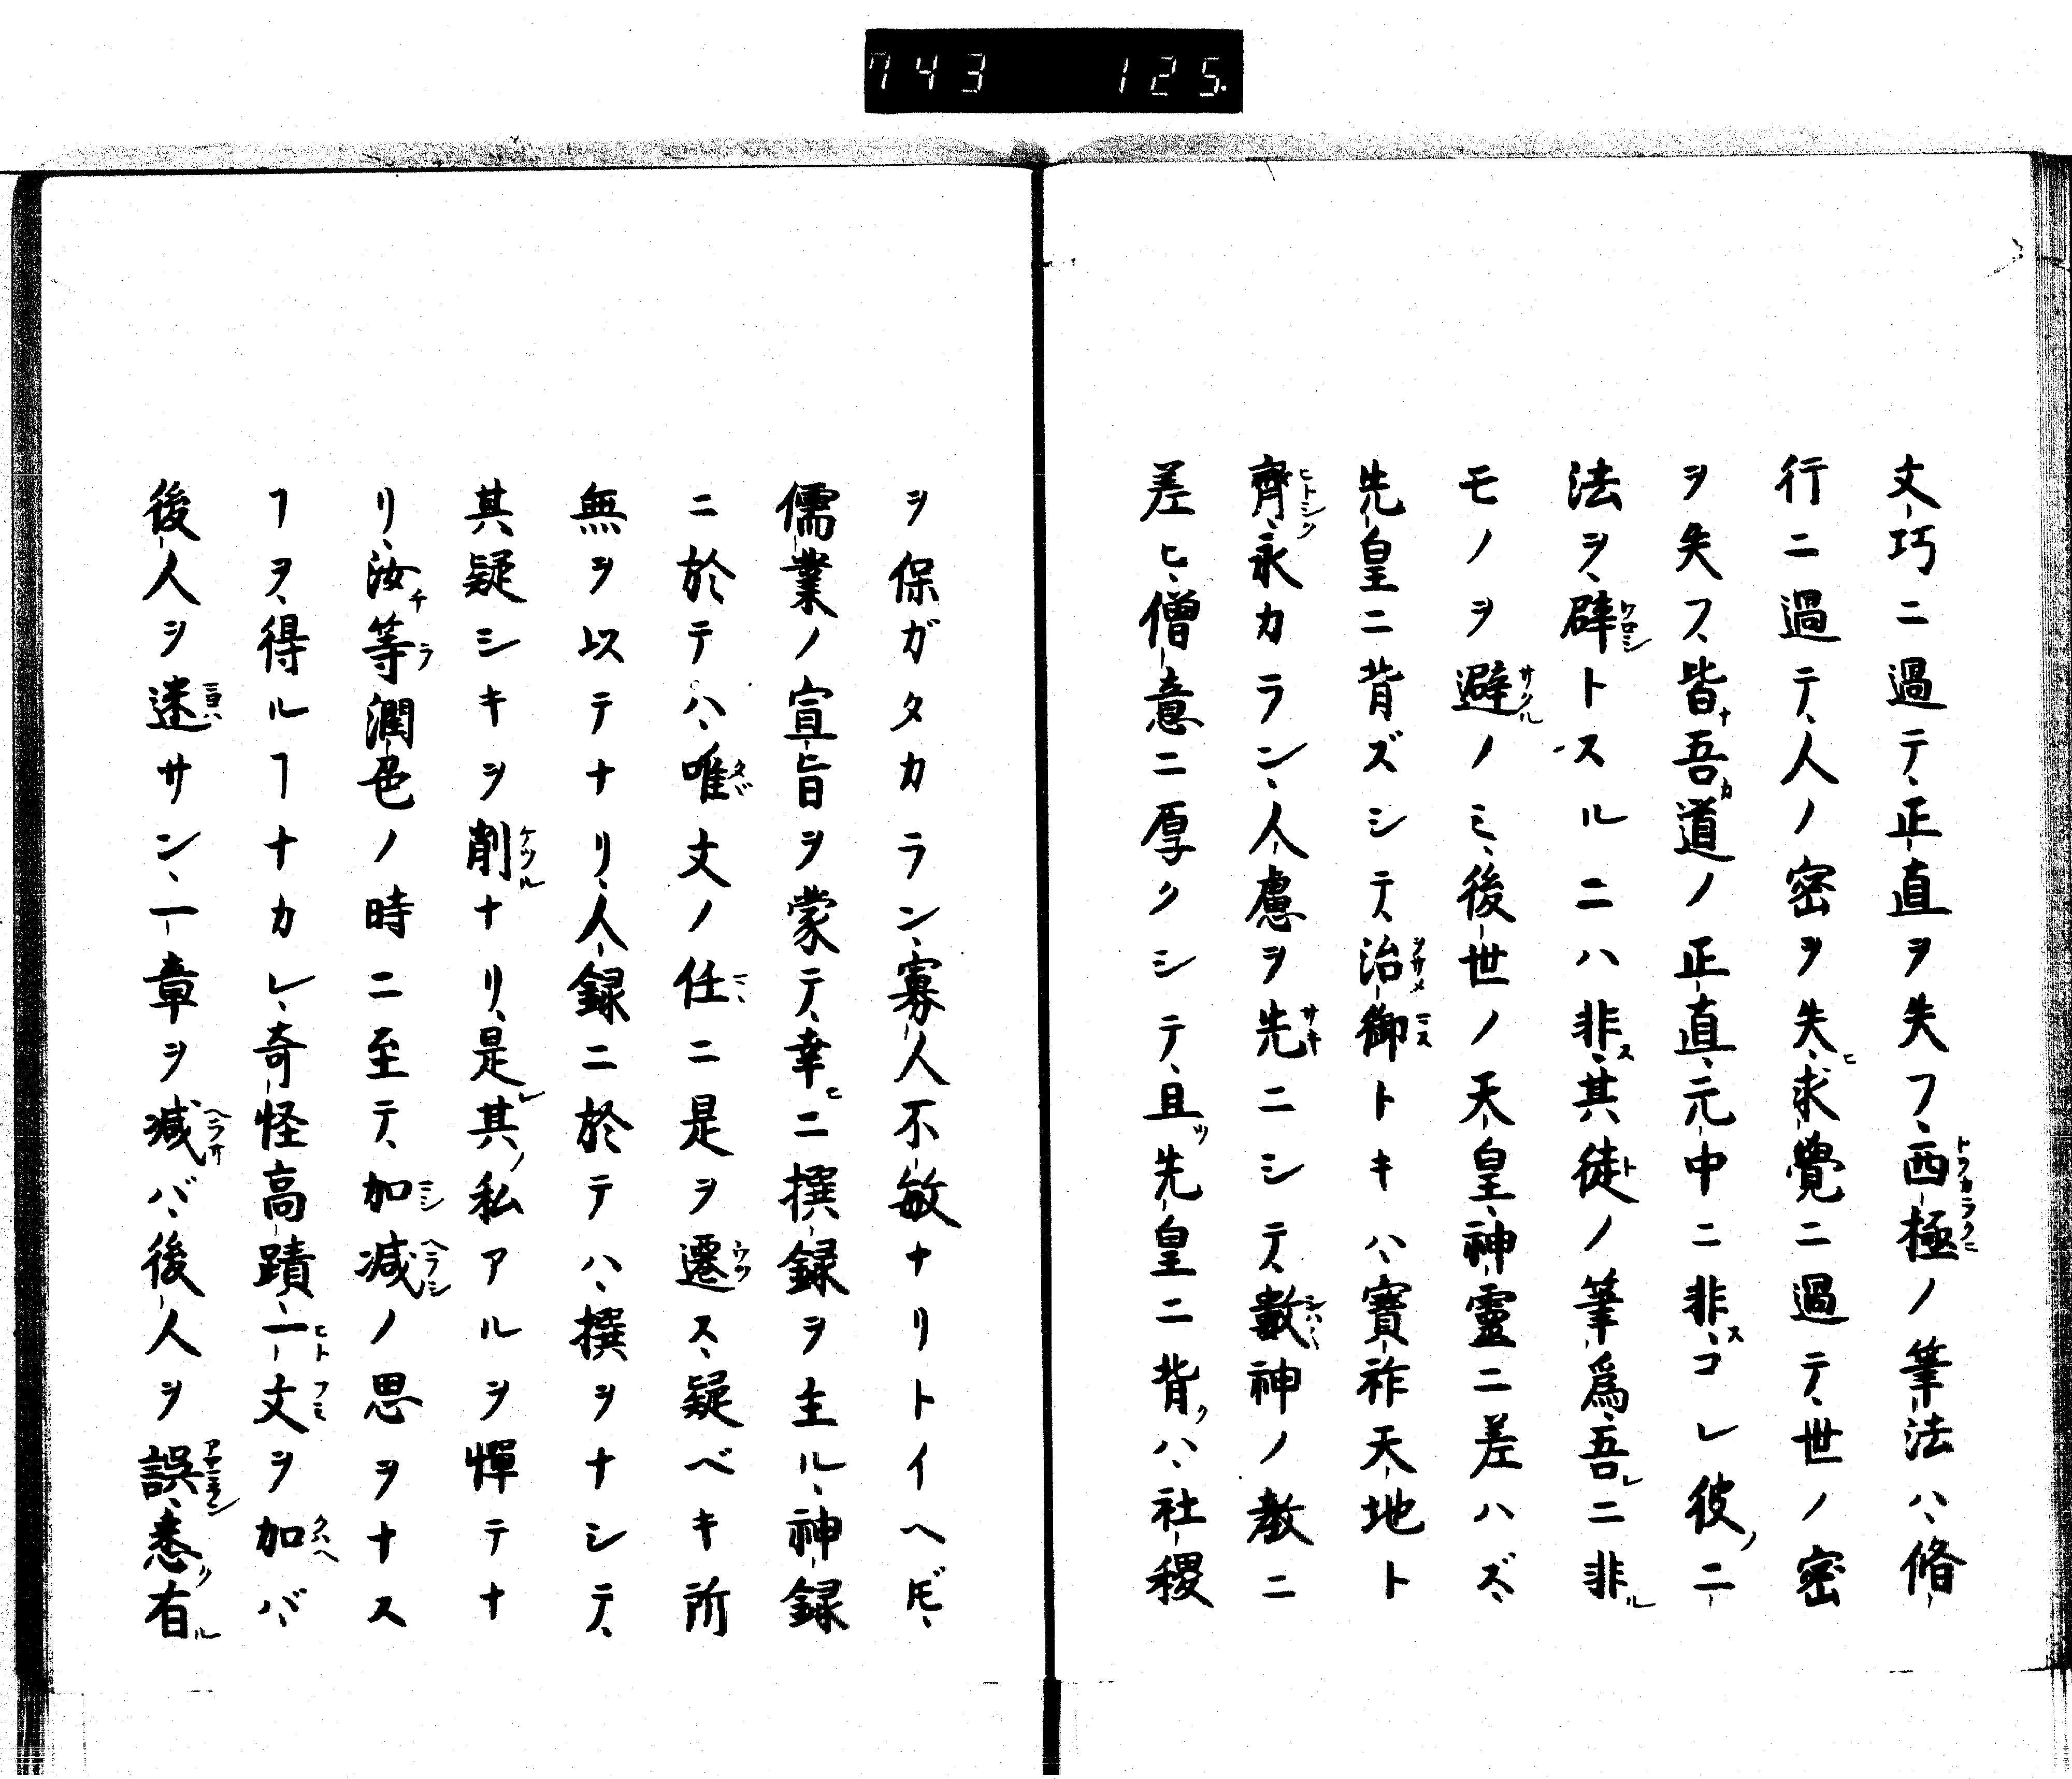 743 125.
文巧ニ過テ、正直ヲ失フ、西極ノ筆法ハ、脩
行ニ過テ、人ノ密ヲ失、求覺ニ過テ、世ノ密
ヲ失フ、皆吾道ノ正直、元中ニ非、コレ彼ニ
法ヲ、辟トスルニハ非、其徒ノ筆爲、吾ニ非
モノヲ避ノミ、後世ノ天皇、神靈ニ差ハズ、
先皇ニ背ズシテ、治御トキハ、寳祚天地ト
齊、永カラン、人慮ヲ先ニシテ、數神ノ教ニ
差ヒ、僧意ニ厚クシテ、且先皇ニ背ハ、社稷
ヲ保ガタカラン、寡人不敏ナリトイヘ𪜈、
儒業ノ宣旨ヲ蒙テ、幸ニ撰録ヲ主ル、神録
ニ於テハ、唯文ノ任ニ是ヲ遷ス、疑ベキ所
無ヲ以テナリ、人録ニ於テハ、撰ヲナシテ、
其疑シキヲ削ナリ、是其私アルヲ憚テナ
リ、汝等潤色ノ時ニ至テ、加減ノ思ヲナス
ヿヲ、得ルヿナカレ、奇怪高蹟、一文ヲ加バ、
後人ヲ迷サン、一章ヲ減バ、後人ヲ誤、悉有